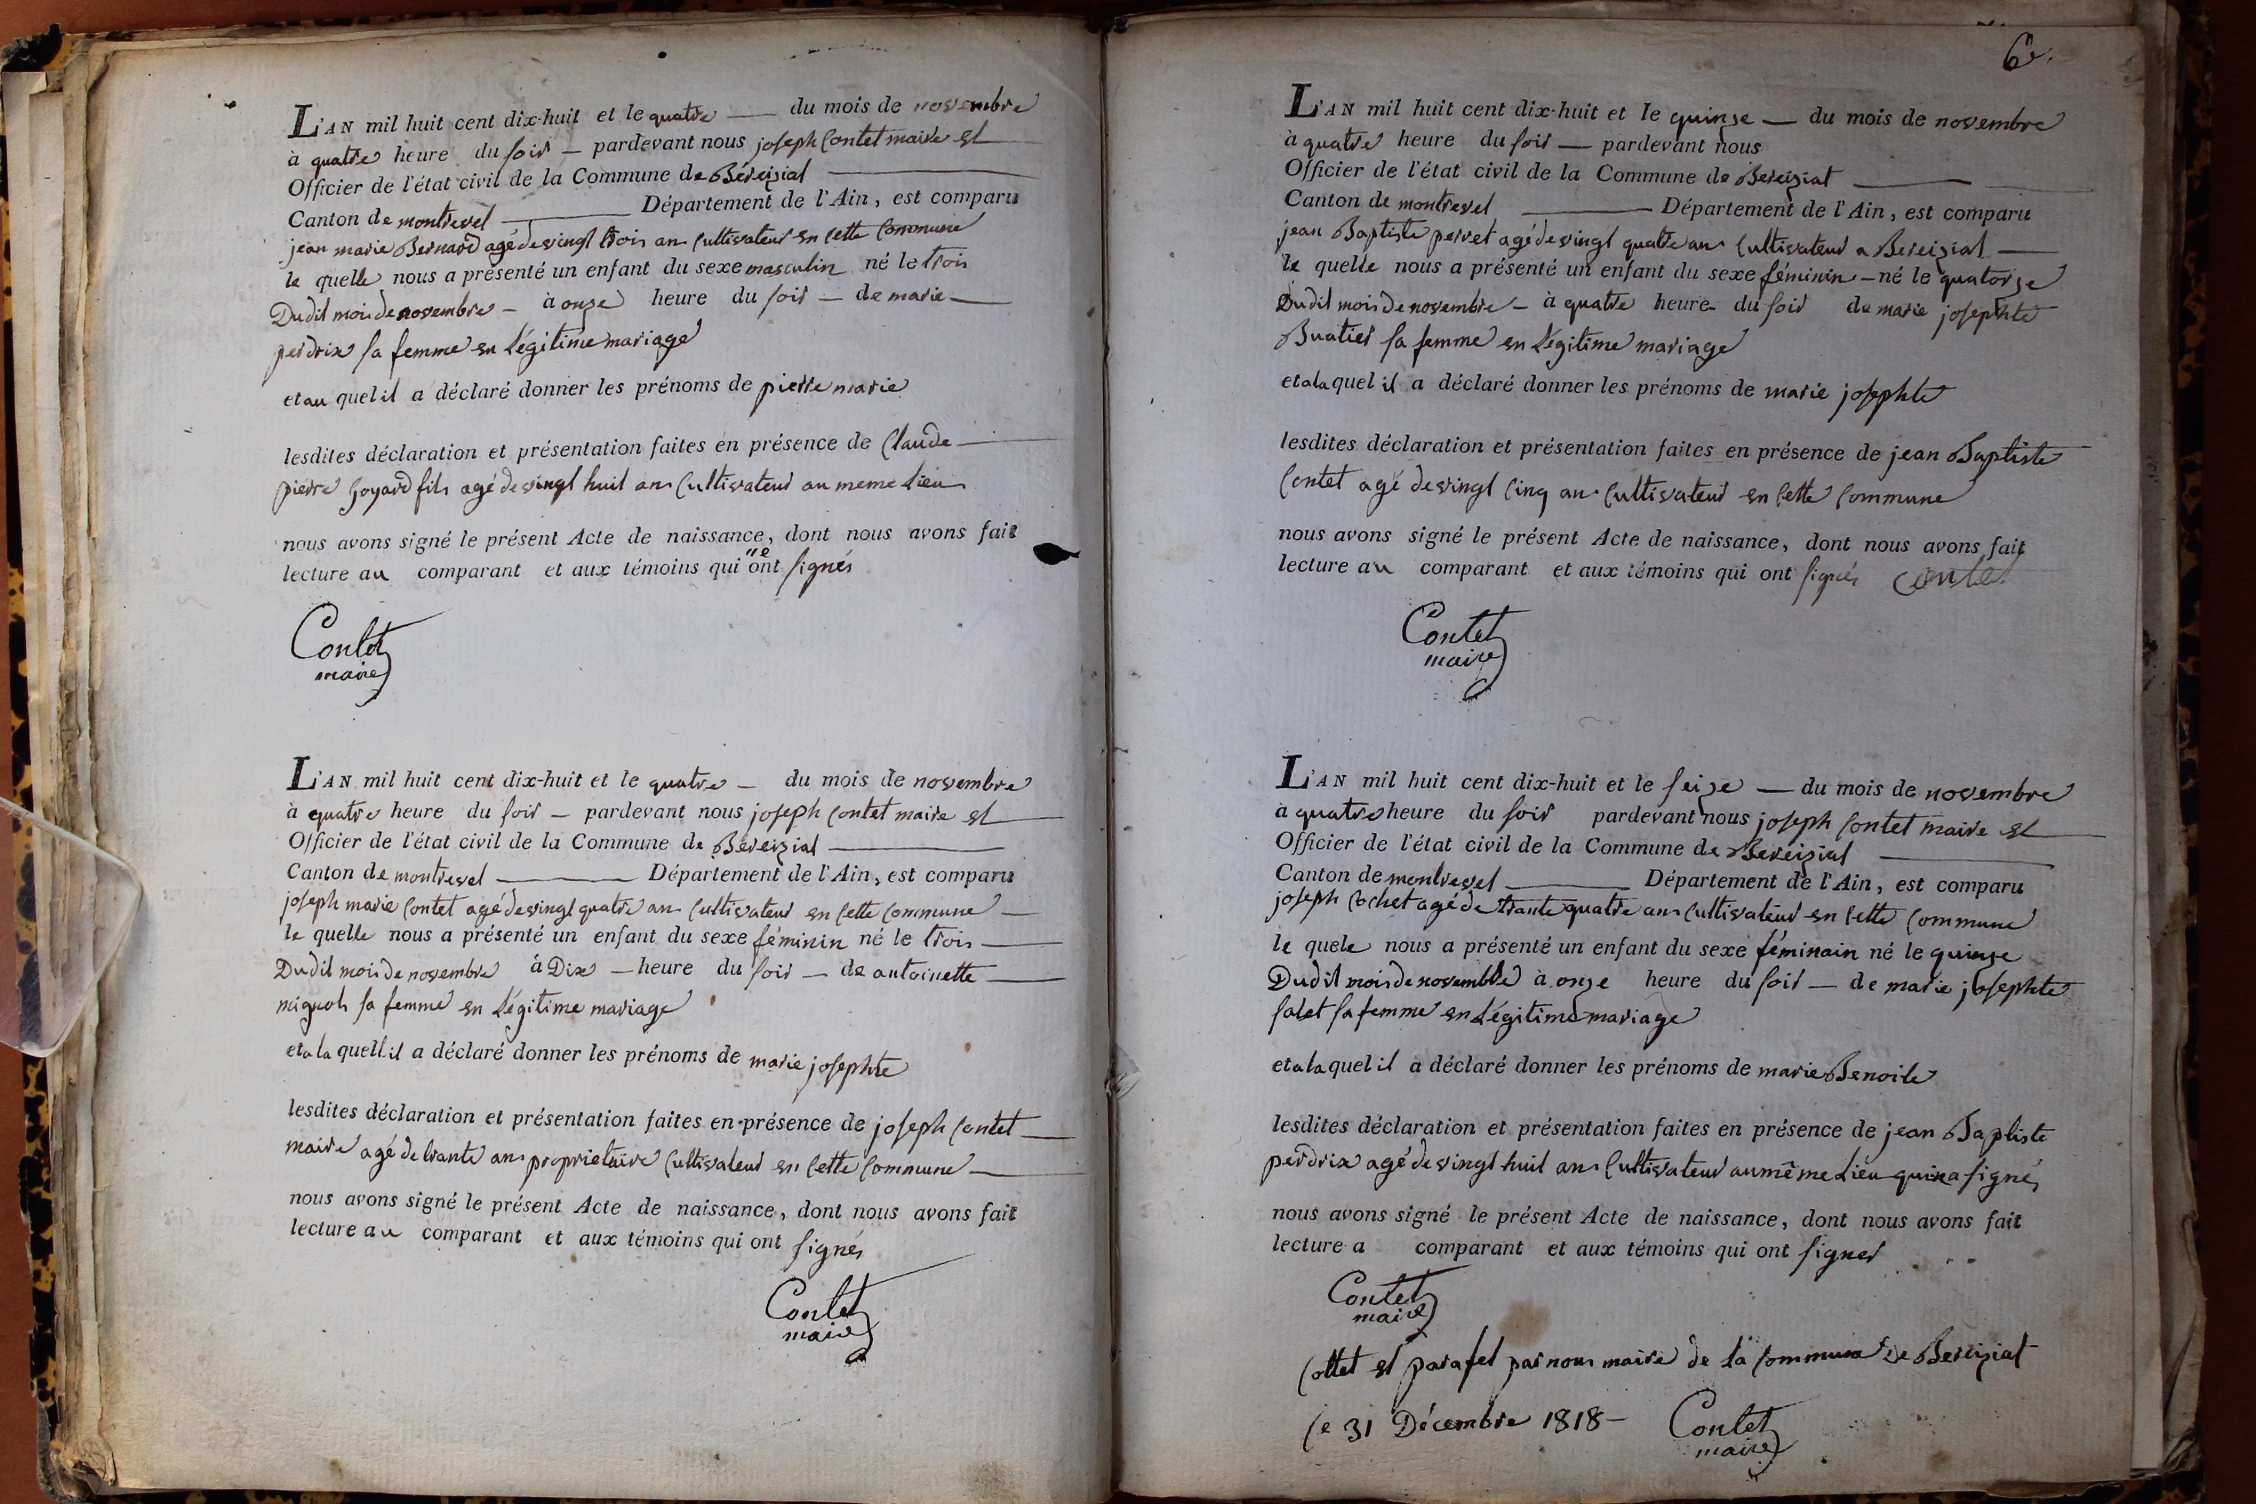 L'AN mil huit cent dix-huit et le quatre — du mois de novembre
à quatre heure du soir — pardevant nous joseph Contet maire et
Officier de l'état civil de la Commune de Béreiziat
Canton de montrevel — Département de l'Ain, est comparu
jean marie Bernard agé de vingt trois ans Cultivateur en cette Commune
le quelle nous a présenté un enfant du sexe masculin né le trois
Dudit mois de novembre — à onze heure du soir — de marie —
perdrix sa femme en Légitime mariage
et au quel il a déclaré donner les prénoms de pierre marie
lesdites déclaration et présentation faites en présence de Claude —
pierre Goyard fils agé de vingt huit ans Cultivateur au meme Lieu
nous avons signé le présent Acte de naissance, dont nous avons fait
lecture au comparant et aux témoins qui ont signés
Contet
maire
L'AN mil huit cent dix-huit et le quatre — du mois de novembre
à quatre heure du soir — pardevant nous joseph Contet maire et
Officier de l'état civil de la Commune de Béreiziat
Canton de montrevel — Département de l'Ain, est comparu
joseph marie Contet agé de vingt quatre ans Cultivateur en cette Commune —
le quelle nous a présenté un enfant du sexe féminin né le trois —
Dudit mois de novembre à Dix — heure du soir — de antoinette —
mignot sa femme en Légitime mariage
et a la quell il a déclaré donner les prénoms de marie josephte
lesdites déclaration et présentation faites en présence de joseph Contet —
maire agé de trante ans proprietaire Cultivateur en cette Commune —
nous avons signé le présent Acte de naissance, dont nous avons fait
lecture au comparant et aux témoins qui ont signés
Contet
maire
6e.
L'AN mil huit cent dix-huit et le quinze — du mois de novembre
à quatre heure du soir — pardevant nous
Officier de l'état civil de la Commune de Bereiziat
Canton de montrevel — Département de l'Ain, est comparu
jean Baptiste perret agé de vingt quatre ans Cultivateur a Bereiziat —
le quelle nous a présenté un enfant du sexe féminin — né le quatorze
Dudit mois de novembre — à quatre heure du soir de marie josephte
Buatier sa femme en Légitime mariage
et a la quel il a déclaré donner les prénoms de marie josephte
lesdites déclaration et présentation faites en présence de jean Baptiste
Contet agé de vingt cinq ans Cultivateur en cette Commune
nous avons signé le présent Acte de naissance, dont nous avons fait
lecture au comparant et aux témoins qui ont signés Contet
Contet
maire
L'AN mil huit cent dix-huit et le seize — du mois de novembre
à quatre heure du soir pardevant nous joseph Contet maire et
Officier de l'état civil de la Commune de Bereiziat
Canton de montrevel — Département de l'Ain, est comparu
joseph Cochet agé de trante quatre ans Cultivateur en cette Commune
le quele nous a présenté un enfant du sexe féminain né le quinze
Dudit mois de novembre à onze heure du soir — de marie josephte
salet sa femme en Légitime mariage
et a la quel il a déclaré donner les prénoms de marie Benoite
lesdites déclaration et présentation faites en présence de jean Baptiste
perdrix agé de vingt huit ans Cultivateur au même Lieu qui n a signés
nous avons signé le présent Acte de naissance, dont nous avons fait
lecture a comparant et aux témoins qui ont signer
Contet
maire
Cottet et parafet par nous maire de la Commune de Bereiziat
Ce 31 Décembre 1818 —
Contet
maire